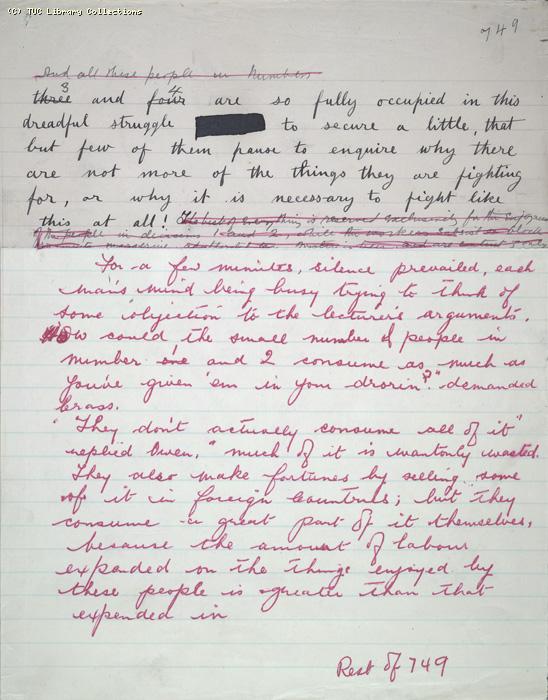 (C) TUC Library Collections
749
And all these people in numbers
three 3 and four 4 are so fully occupied in this
dreadful struggle to secure a little, that
but few of them pause to enquire why there
are not more of the things they are fighting
for, or why it is necessary to fight like
this at all! The best of everything is reserved exclusively for the enjoyment
of the people in divisions 1 and 2, while the workers subsist on block
For a few minutes, silence prevailed, each
man's mind being busy trying to think of
some objection to the lecturer's arguments.
"How could the small number of people in
number one and 2 consume as much as
you've given 'em in your drorin?" demanded
Crass.
"They don't actually consume all of it"
replied Owen, "much of it is wantonly wasted.
They also make fortunes by selling some
of it in foreign countries; but they
consume a great part of it themselves,
because the amount of labour
expended on the things enjoyed by
these people is greater than that
expended in
Rest of 749